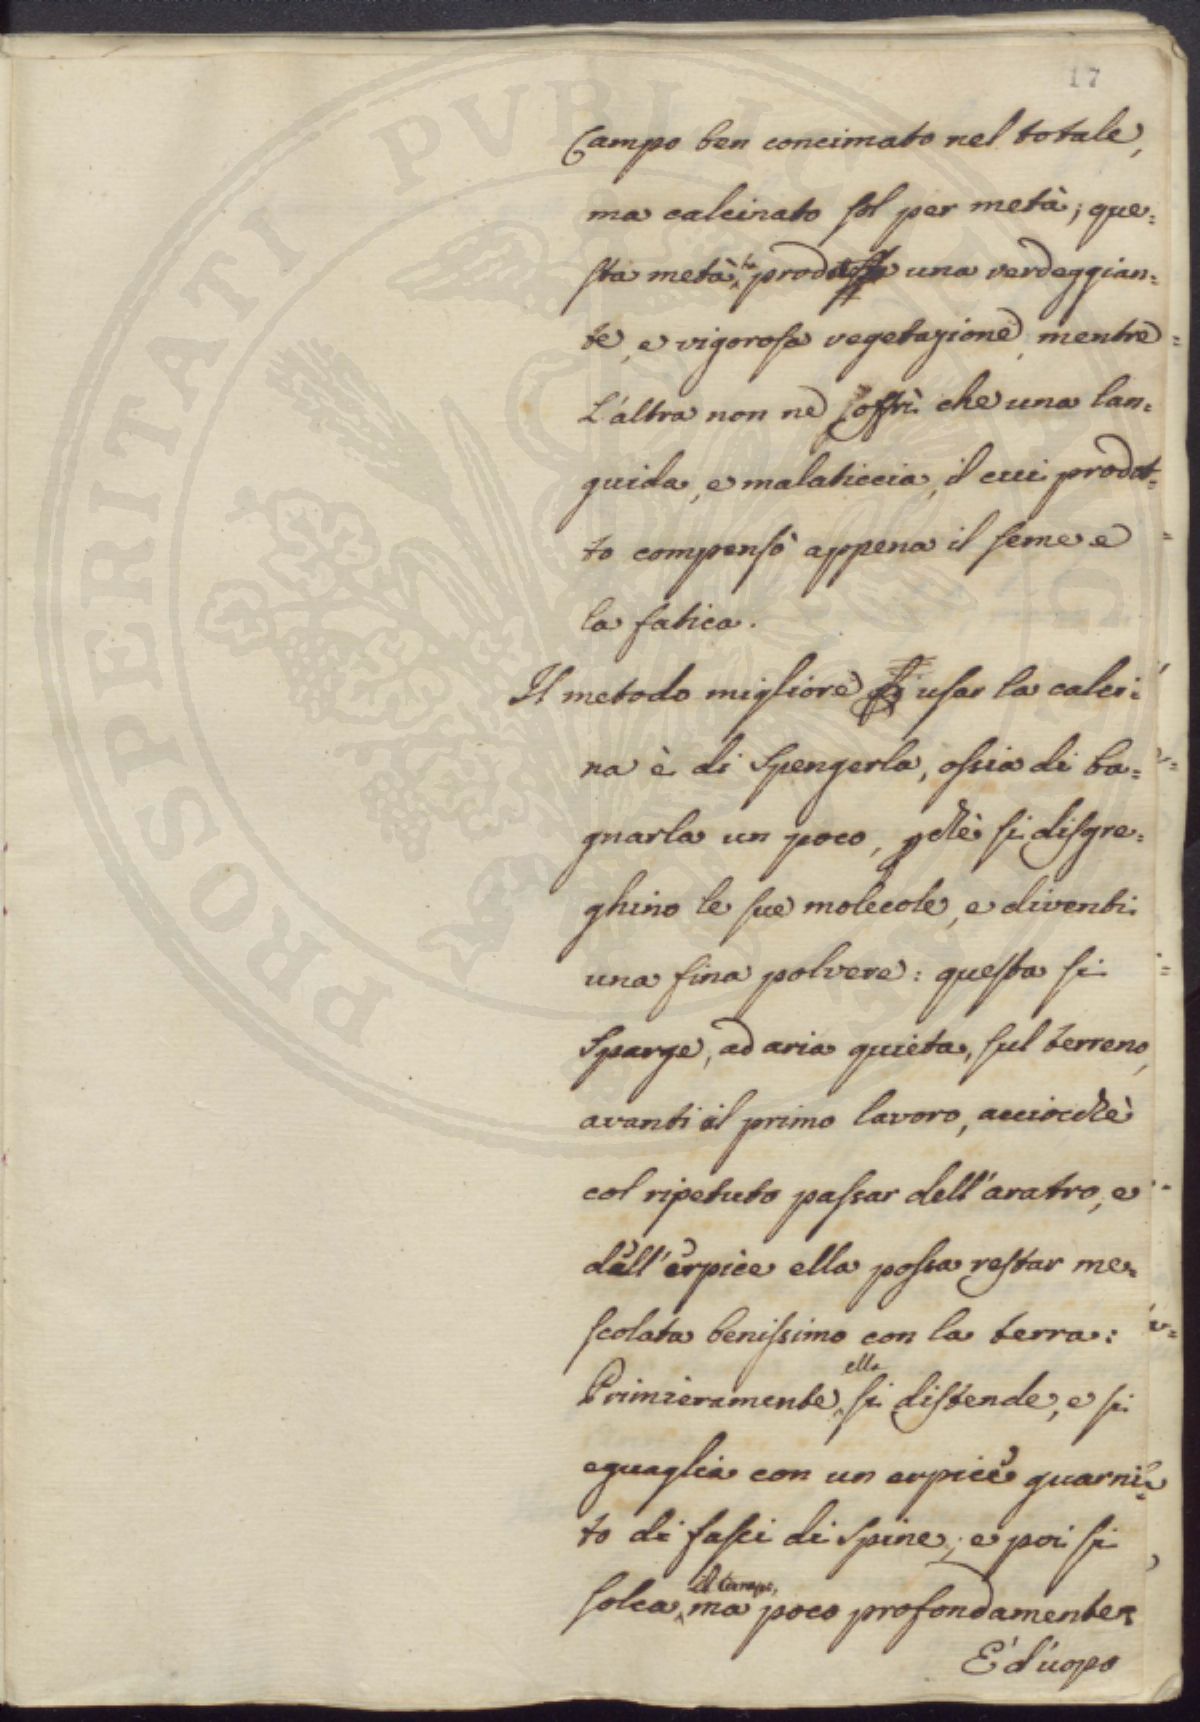 17
Campo ben concimato nel totale,
ma calcinato sol per metà; que=
sta metà ha prodotto una verdeggian=
te, e vigorosa vegetazione, mentre
L'altra non ne offrì che una lan=
guida, e malaticcia, il cui prodot=
to compensò appena il seme e
la fatica.
Il metodo migliore di usar la calci=
na è di Spengerla, ossia di ba=
gnarla un poco, pchè si disgre=
ghino le sue molecole, e diventi
una fina polvere: questa si
Sparge, ad aria quieta, sul terreno,
avanti il primo lavoro, acciocchè
col ripetuto passar dell'aratro, e
dell'erpice ella possa restar me=
scolata benissimo con la terra:
Primieramente ella si distende, e si
eguaglia con un erpice guarni=
to di fasci di Spine; e poi si
solca il Campo, ma poco profondamente.
E' d'uopo
PROSPERITATI PVBLICAE